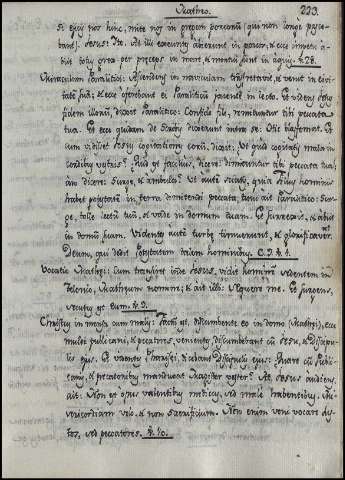 Mattheo. 223.
si ejicis nos hinc, mitte nos in gregem porcorum (qui non longe pasce-
bant) Jesus: Ite. At illi exeuntes abierunt in porcos, & ecce impetu a-
biit totus grex per præceps in mare, & mortui sunt in aquis.
Miraculum Paralitici: Ascendens in naviculam transfretavit, & venit in civi-
tatē suā; & ecce offerebant ei Paraliticum jacentē in lecto. Et videns Jesus
fidem illorū, dixit Paralitico: Confide fili, remittuntur tibi peccata
tua. Et ecce quidam de Scribis dixerunt intra se: Hic blasfemat. Et
cum vidisset Jesus cogitationes eorū, dixit: Ut quid cogitatis mala in
cordibus vestris? Quid est facilius, dicere: dimittuntur tibi peccata tua;
an dicere: Surge, & ambula? Ut autē sciatis, quia Filius hominis
habet potestatē in terra dimittendi peccata, tunc ait Paralitico: Sur-
ge, tolle lectū tuū, & vade in domum tuam. Et surrexit, & abiit
in domū suam. Videntes autē turbæ timuerunt, & glorificaverūt
Deum, qui dedit potestatem talem hominibus.
Vocatio Matthæi: Cum transiret inde Jesus, vidit hominē sedentem in
telonio, Matthæum nomine; & ait illi: Sequere me. Et surgens,
secutus est eum.
Factū est, discumbente eo in domo (Matthæi), ecce
multi publicani, & peccatores, venientes discumbebant cū Jesu, & Discipu-
lis ejus. Et videntes Pharisæi, dicebant Discipulis ejus: Quare cū Publi-
canis, & peccatoribus manducat Magister vester? At Jesus audiens,
ait: Non est opus valentibus medicus, sed male habentibus.
Non enim veni vocare jus-
tos, sed peccatores.